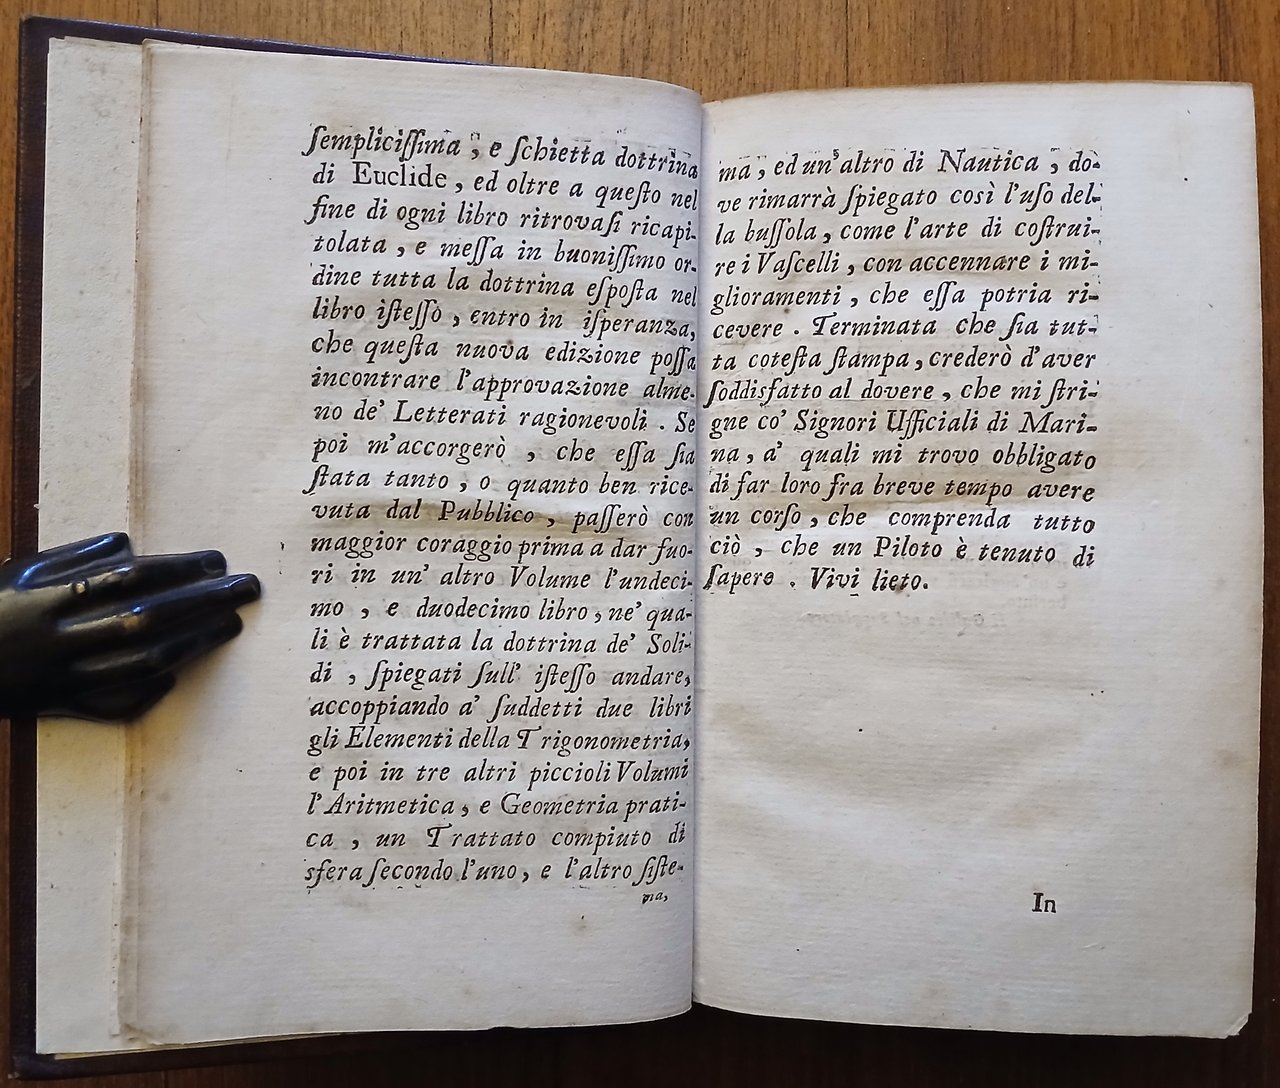 ſempliciſſima , e ſchietta dottrina
di Euclide , ed oltre a queſto nel
fine di ogni libro ritrovaſi ricapi-
tolata , e meſſa in buoniſſimo or-
dine tutta la dottrina eſpoſta nel
libro iſteſſo , entro in iſperanza,
che queſta nuova edizione poſſa
incontrare l'approvazione alme-
no de' Letterati ragionevoli . Se
poi m'accorgerò , che eſſa ſia
ſtata tanto , o quanto ben rice-
vuta dal Pubblico , paſſerò con
maggior coraggio prima a dar fuo-
ri in un' altro Volume l'undeci-
mo , e duodecimo libro , ne' qua-
li è trattata la dottrina de' Soli-
di , ſpiegati ſull' iſteſſo andare,
accoppiando a' ſuddetti due libri
gli Elementi della Trigonometria,
e poi in tre altri piccioli Volumi
l'Aritmetica, e Geometria prati-
ca , un Trattato compiuto di
sfera ſecondo l'uno, e l'altro ſiſte-
ma,
ma , ed un'altro di Nautica , do-
ve rimarrà ſpiegato così l'uſo del-
la buſſola , come l'arte di coſtrui-
re i Vaſcelli , con accennare i mi-
glioramenti , che eſſa potria ri-
cevere . Terminata che ſia tut-
ta coteſta ſtampa, crederò d'aver
ſoddisfatto al dovere , che mi ſtri-
gne co' Signori Ufficiali di Mari-
na , a' quali mi trovo obbligato
di far loro fra breve tempo avere
un corſo , che comprenda tutto
ciò , che un Piloto è tenuto di
ſapere . Vivi lieto.
In